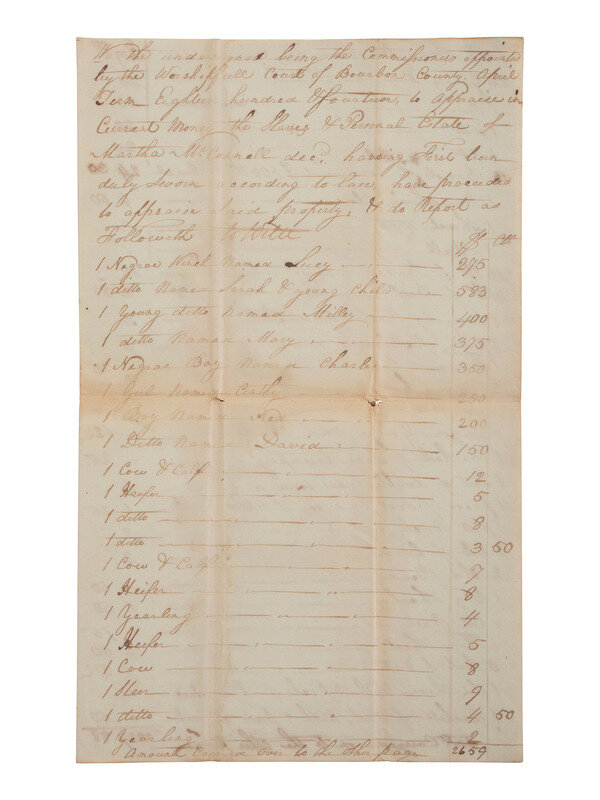 We the undersigned being the Commissioners appointed
by the Worshipfull Court of Bourbon County, April
Term Eighteen hundred & fourteen, to appraise in
Current Money the Slaves & Personal Estate of
Martha McConnell decd, having First been
duly Sworn according to law, have proceeded
to appraise said property, & do Report as
Followeth to Witt
$ Cts
1 Negroe Wench Named Lucy 275
1 ditto Named Sarah & young Child 583
1 Young ditto Named Milley 400
1 ditto Named Mary 375
1 Negroe Boy Named Charles 350
1 Girl Named 250
1 Boy Named Ned 200
1 Ditto Named David 150
1 Cow & Calf 12
1 Heifer 5
1 ditto 8
1 ditto 3 50
1 Cow & Calf 7
1 Heifer 8
1 Yearling 4
1 Heifer 5
1 Cow 8
1 Steer 9
1 ditto 4 50
1 Yearling 2
Amount Carried over to the other page 2659